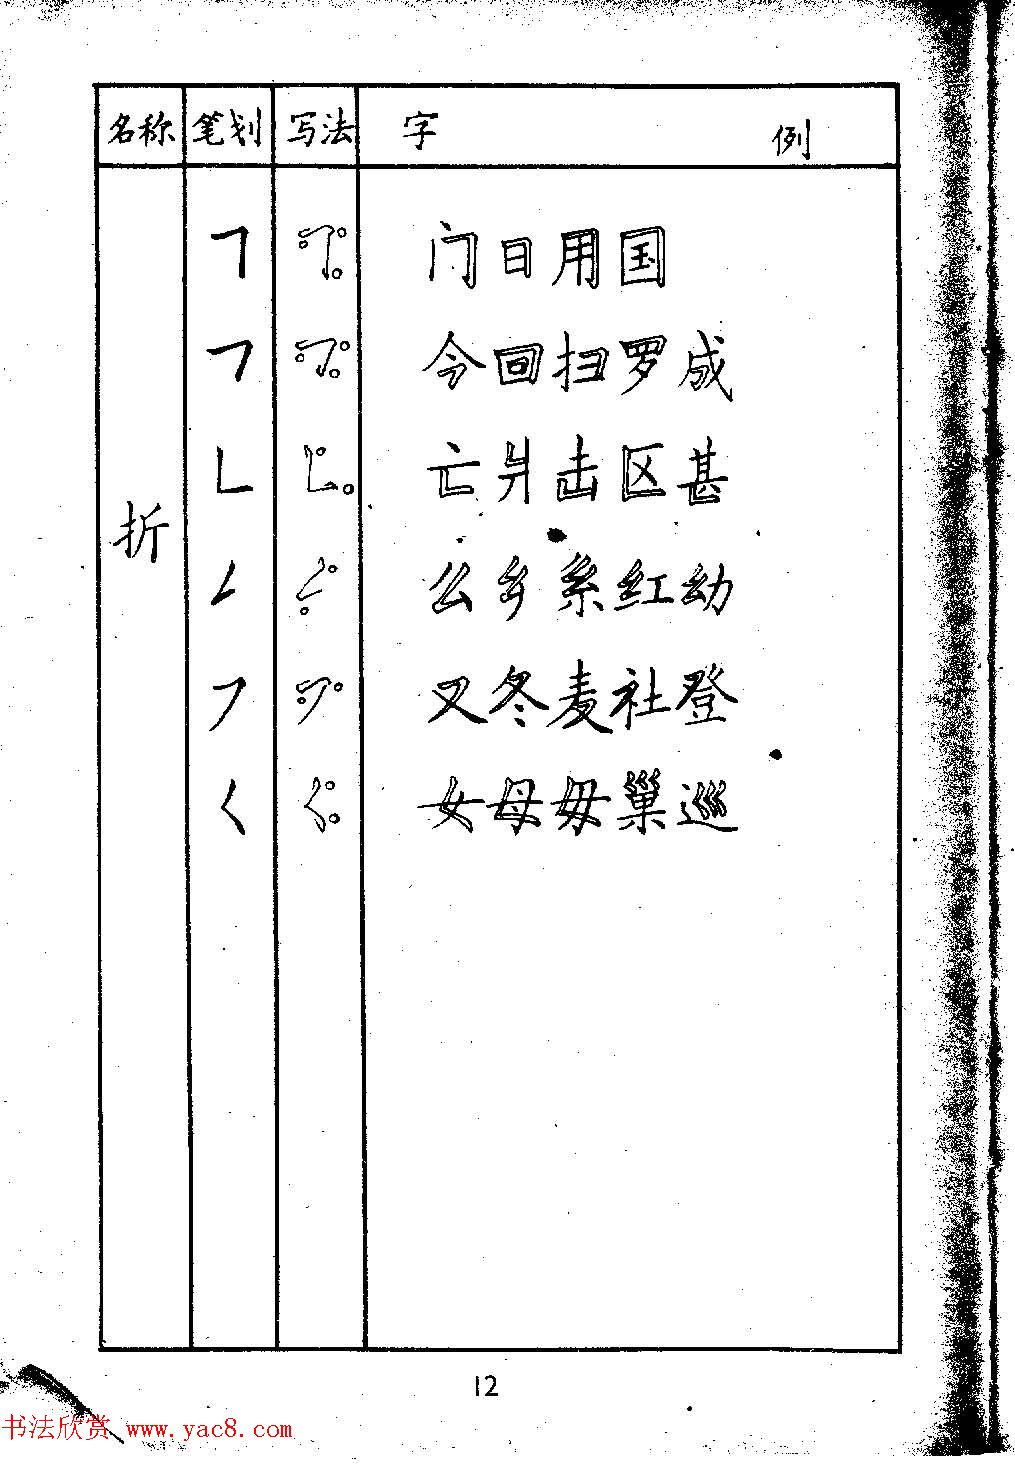 名称 笔划 写法 字 例
折
㇕ 门日用国
㇇ 今回扫罗成
㇗ 亡爿击区甚
㇜ 么乡系红幼
㇇ 又冬麦社登
㇛ 女母毋巢巡
12
书法欣赏 www.yac8.com